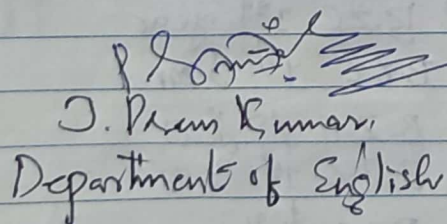 J. Prem Kumar,
Department of English